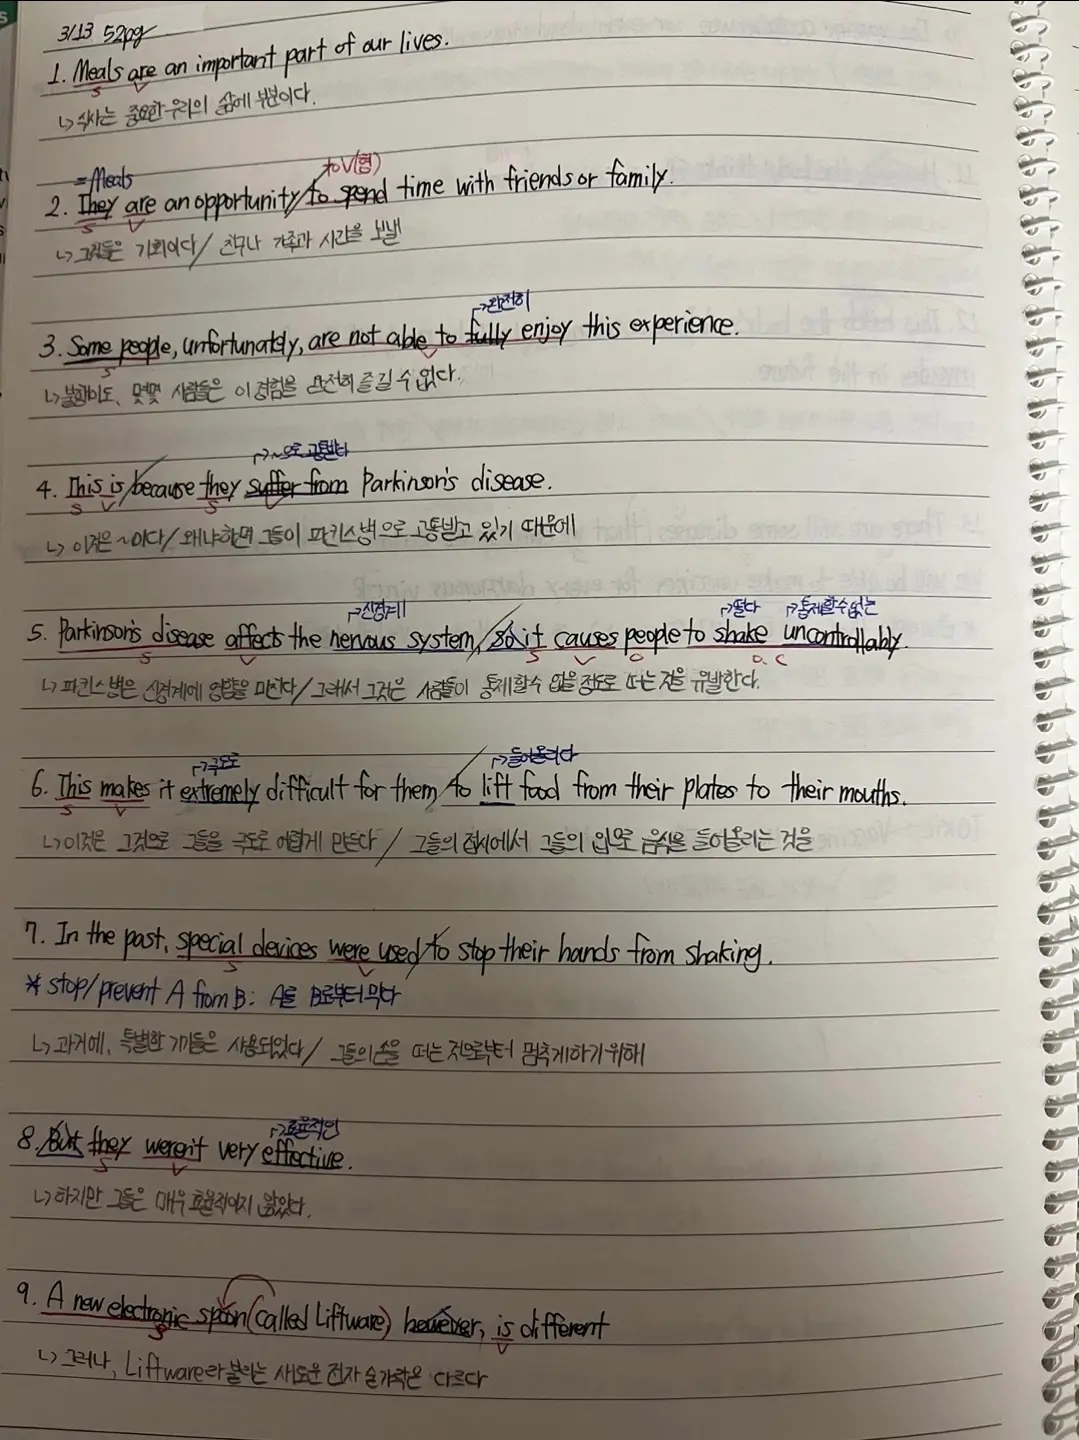 3/13 52pg
1. Meals are an important part of our lives.
S V
↳ 식사는 중요한 우리의 삶에 부분이다.
=Meals to V(형)
2. They are an opportunity/to spend time with friends or family.
S V
↳ 그것들은 기회이다/ 친구나 가족과 시간을 보낼
↱완전히
3. Some people, unfortunately, are not able to fully enjoy this experience.
S V
↳ 불행이도, 몇몇 사람들은 이 경험을 완전히 즐길 수 없다.
↱~으로 고통받다
4. This is/because they suffer from Parkinson's disease.
S V S V
↳ 이것은 ~이다/ 왜냐하면 그들이 파킨스병으로 고통받고 있기 때문에
↱신경계 ↱떨다 ↱통제할수없는
5. Parkinson's disease affects the nervous system,/so it causes people to shake uncontrollably.
S V S V O O.C
↳ 파킨스병은 신경계에 영향을 미친다/ 그래서 그것은 사람들이 통제할수 없을 정도로 떠는 것을 유발한다.
↱극도로 ↱들어올리다
6. This makes it extremely difficult for them/to lift food from their plates to their mouths.
S V
↳ 이것은 그것으로 그들을 극도로 어렵게 만든다 / 그들의 접시에서 그들의 입으로 음식을 들어올리는 것을
7. In the past, special devices were used/to stop their hands from shaking.
S V
* stop/prevent A from B: A를 B로부터 막다
↳ 과거에, 특별한 기기들은 사용되었다/ 그들의 손을 떠는 것으로부터 멈추게하기 위해
↱효율적인
8. But they weren't very effective.
S V
↳ 하지만 그들은 매우 효율적이지 않았다.
9. A new electronic spoon(called Liftware) however, is different
S V
↳ 그러나, Liftware라 불리는 새로운 전자 숟가락은 다르다